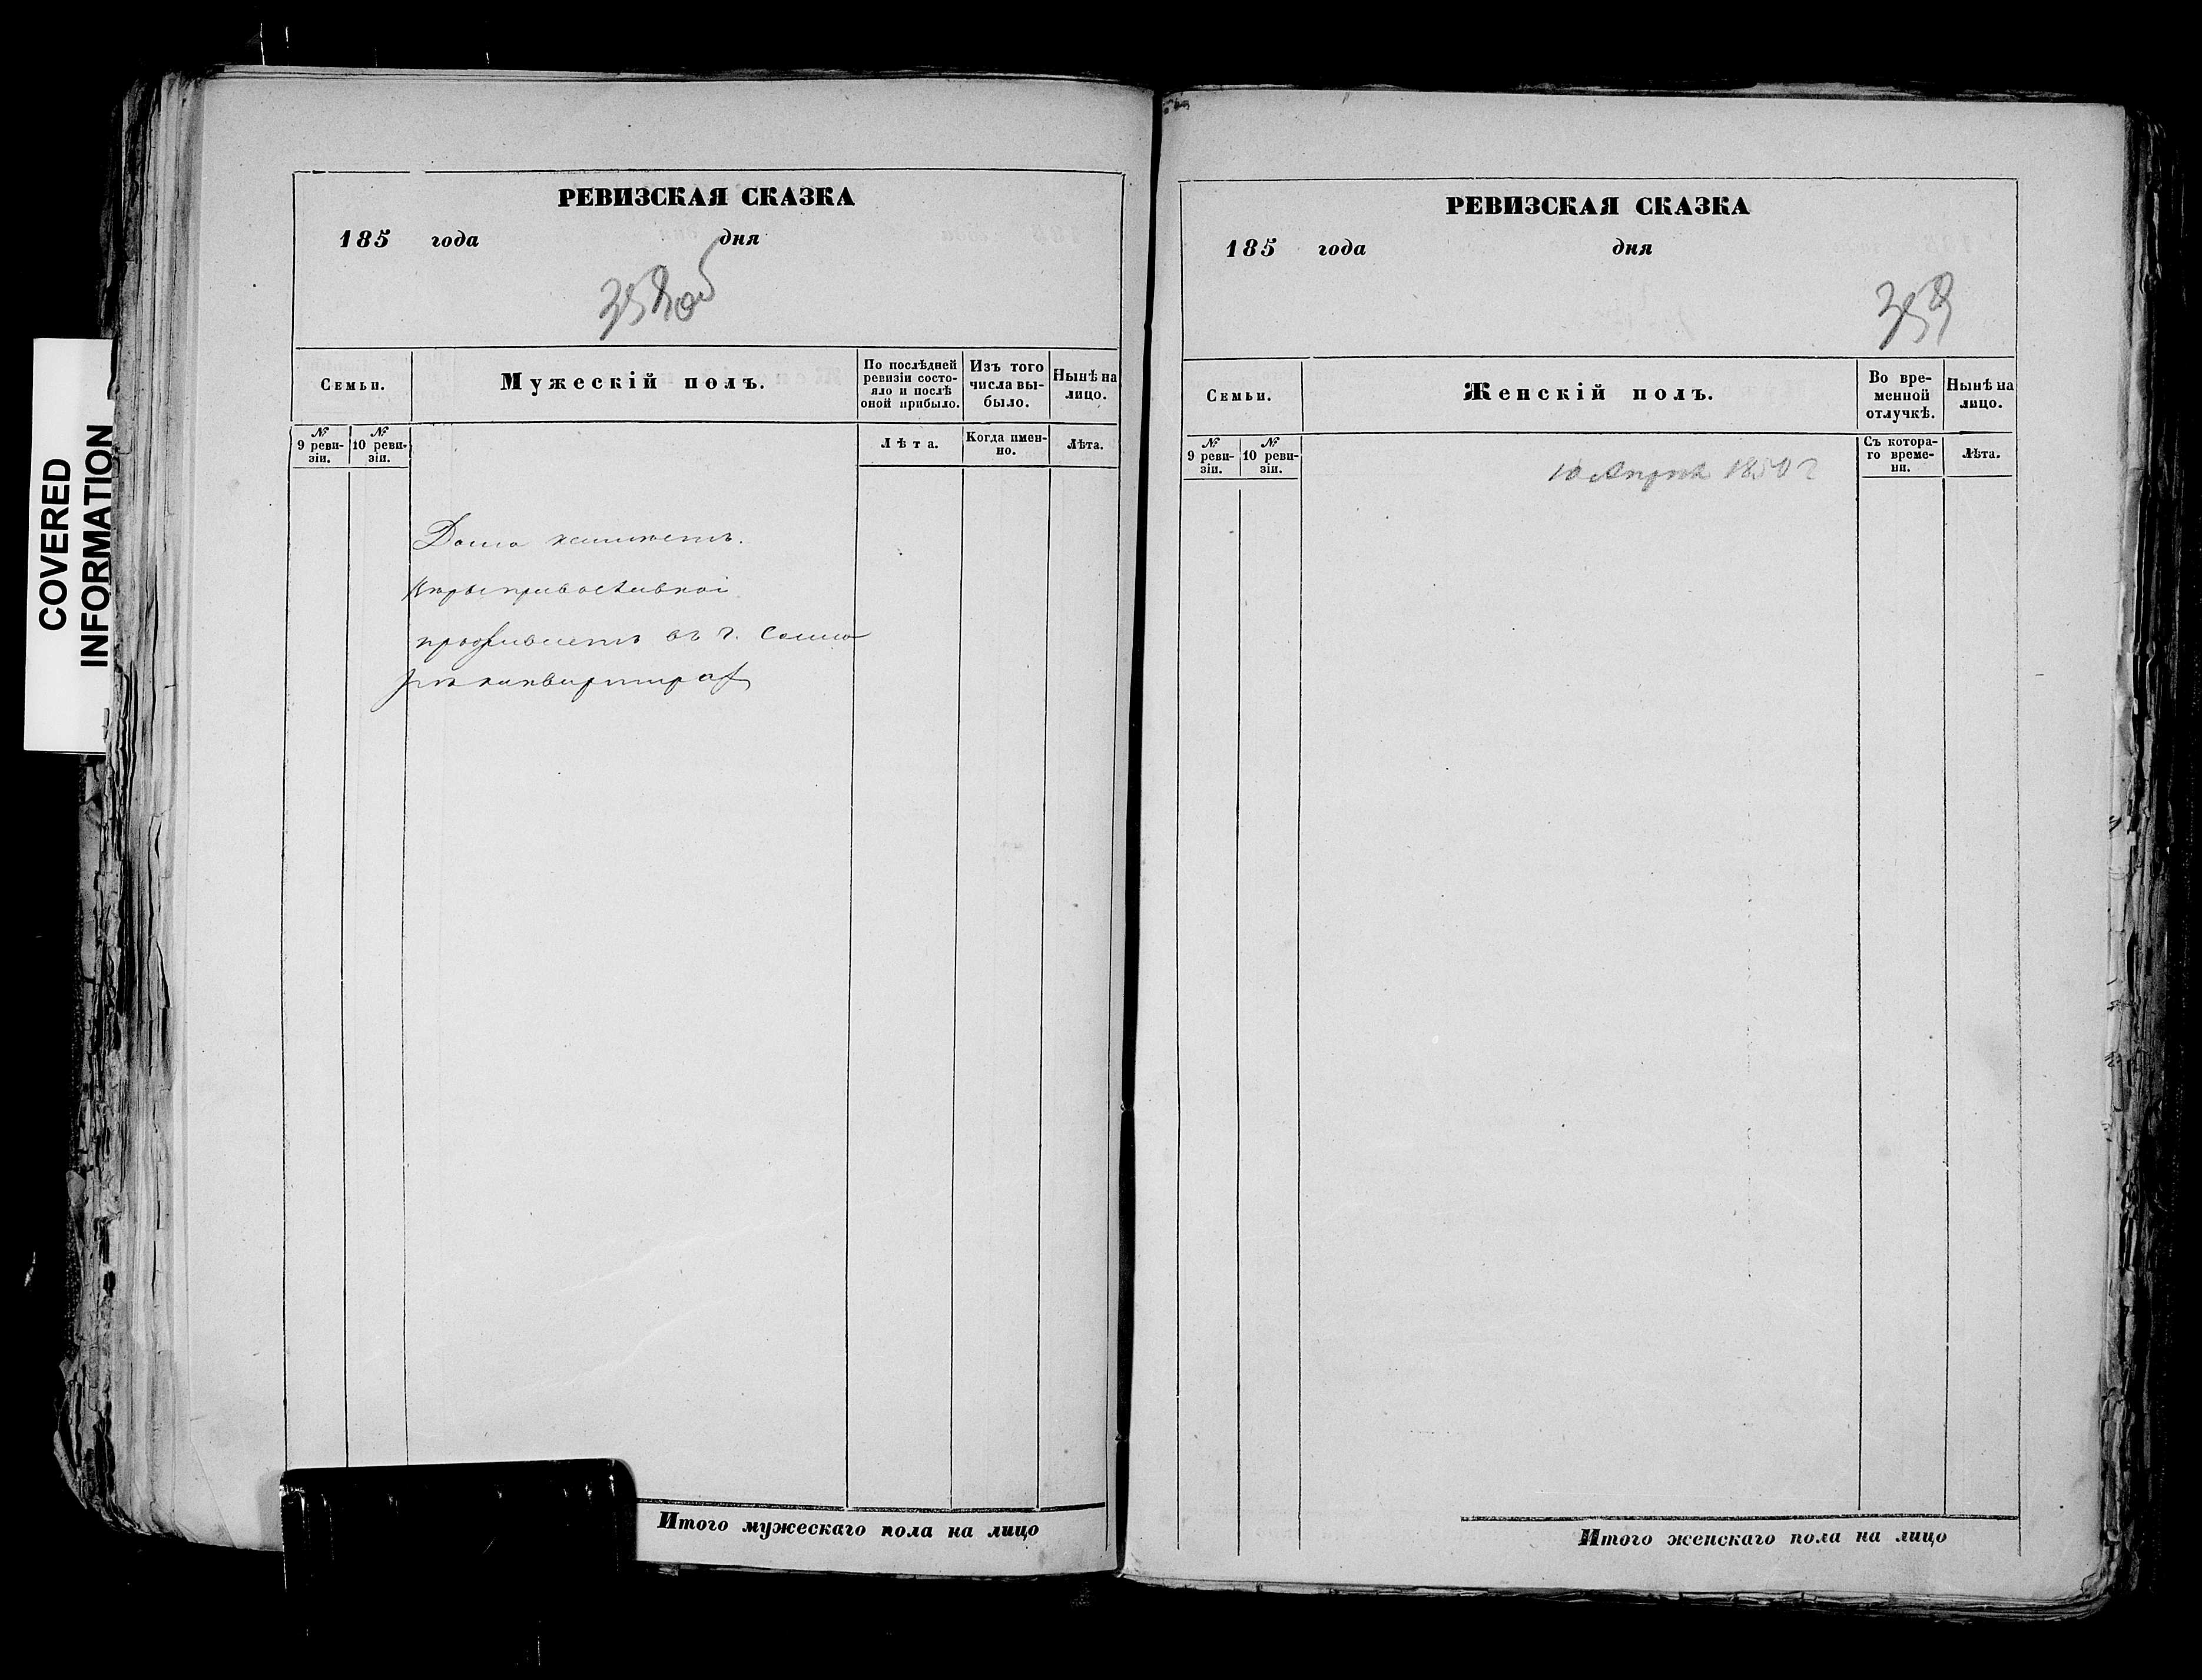 COVERED
INFORMATION
РЕВИЗСКАЯ СКАЗКА
185 года дня
358об
Семьи.
Мужескій полъ.
По послѣдней ревизіи состояло и послѣ оной прибыло.
Изъ того числа выбыло.
Нынѣ на лицо.
№ 9 ревизіи.
№ 10 ревизіи.
Лѣта.
Когда именно.
Лѣта.
Дома
въ г.
Итого мужескаго пола на лицо
РЕВИЗСКАЯ СКАЗКА
185 года дня
359
Семьи.
Женскій полъ.
Во временной отлучкѣ.
Нынѣ на лицо.
№ 9 ревизіи.
№ 10 ревизіи.
Съ котораго времени.
Лѣта.
10 Апрѣля 1850 г
Итого женскаго пола на лицо